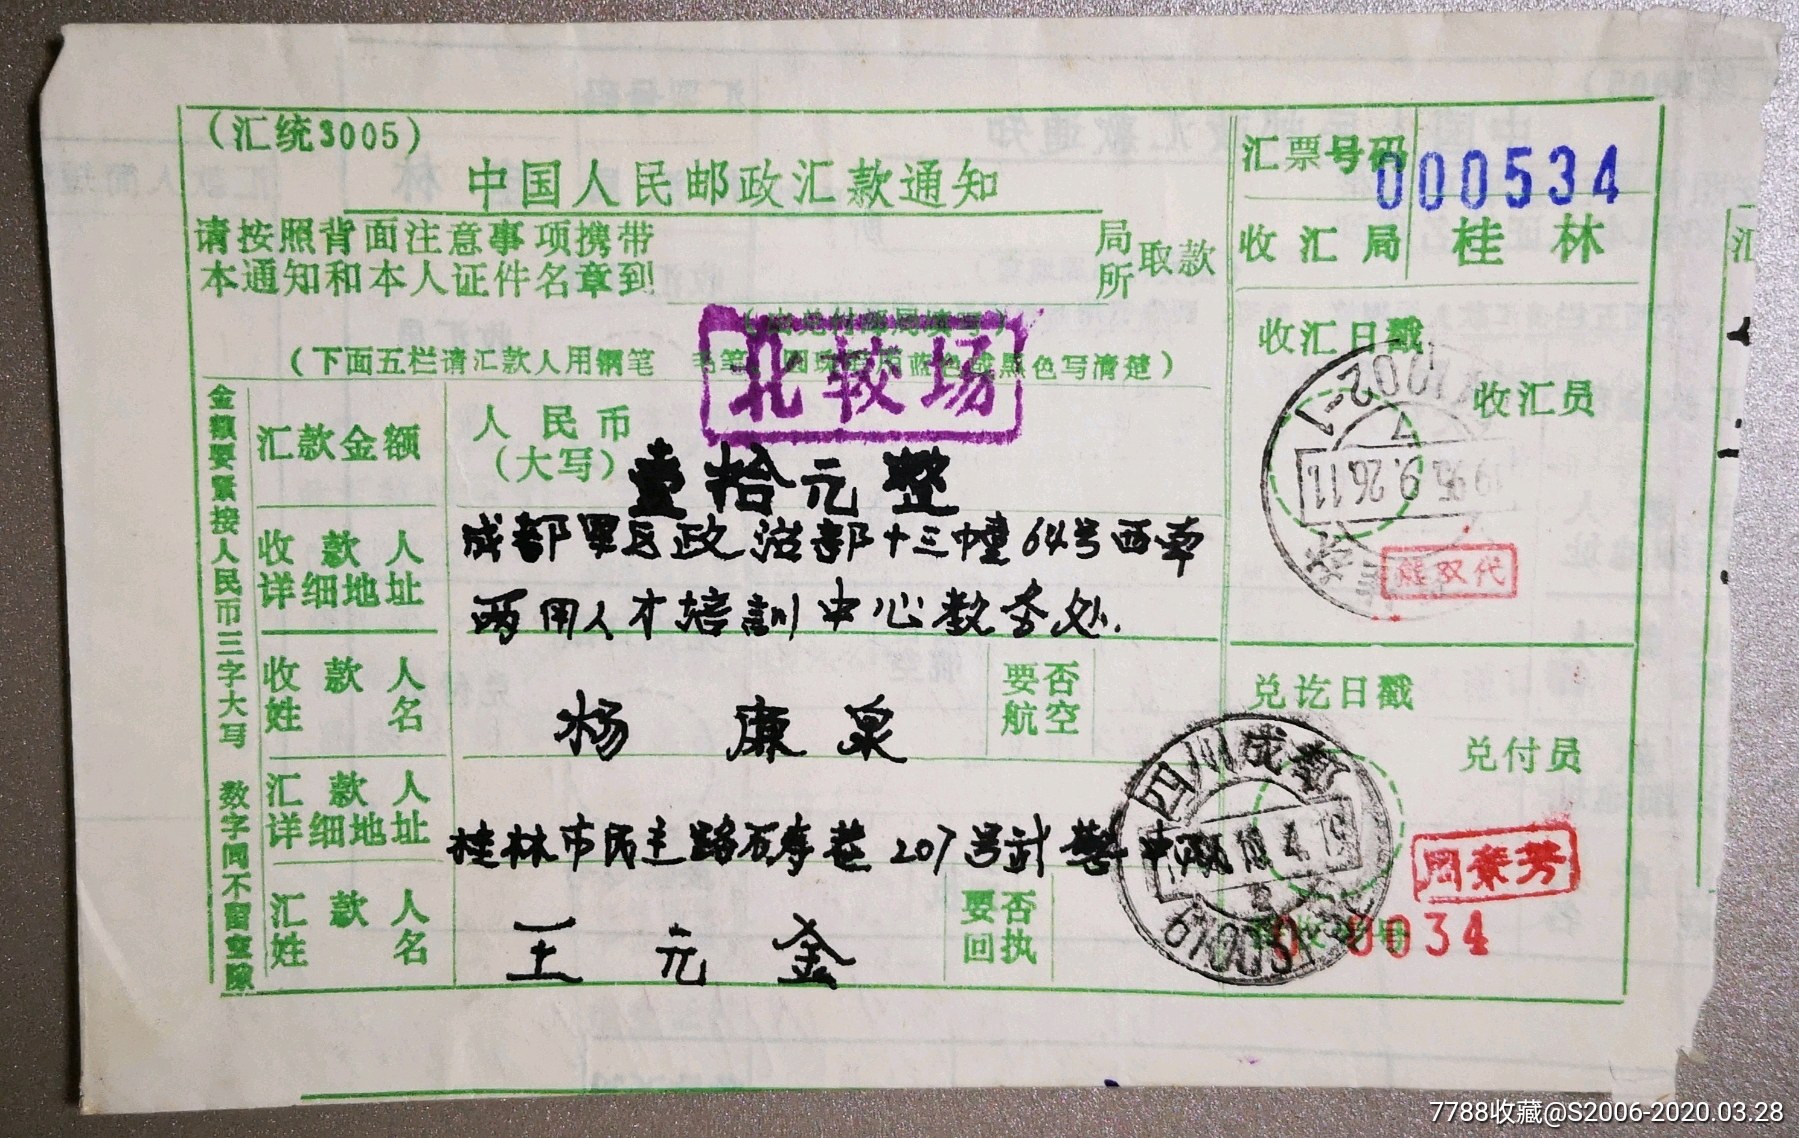 (汇统3005)
中国人民邮政汇款通知
汇票号码 000534
请按照背面注意事项携带
本通知和本人证件名章到
局
所
取款
收汇局 桂林
(由兑付邮局填写)
(下面五栏请汇款人用钢笔 毛笔 圆珠笔用蓝色或黑色写清楚)
北较场
收汇日戳
收汇员
金额要紧接人民币三字大写 数字间不留空隙
汇款金额
人民币
(大写)
壹拾元整
1995.9.26.11
熊双代
收款人
详细地址
成都军区政治部十三幢64号西南
两用人才培训中心教务处.
收款人
姓名
杨廉泉
要否
航空
兑讫日戳
兑付员
四川成都
610051
周素芳
汇款人
详细地址
桂林市民主路
207号武警中队
汇款人
姓名
王元金
要否
回执
0034
汇
7788收藏@S2006-2020.03.28